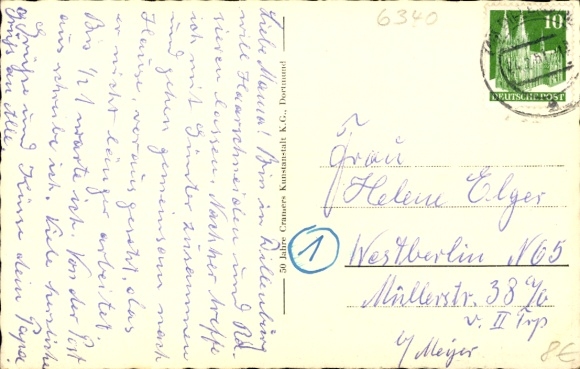 Liebe Mama! Bin in Dillenburg
will Haarschneiden und Ra-
sieren lassen. Nachher treffe
ich mit Günter zusammen
und gehen gemeinsam nach
Hause, vorausgesetzt, das
er nicht länger arbeitet.
Bis 1/2 1 warte ich. Von der Post
aus schreibe ich. Viele herzliche
Grüße und Küsse dein Papa
Gruß an Alle
50 Jahre Cramers Kunstanstalt K.G., Dortmund
6340
10
DEUTSCHE POST
Frau
Helene Elger
1
Westberlin N65
Müllerstr. 38 a/b
v. II Trp
b/ Meyer
8€